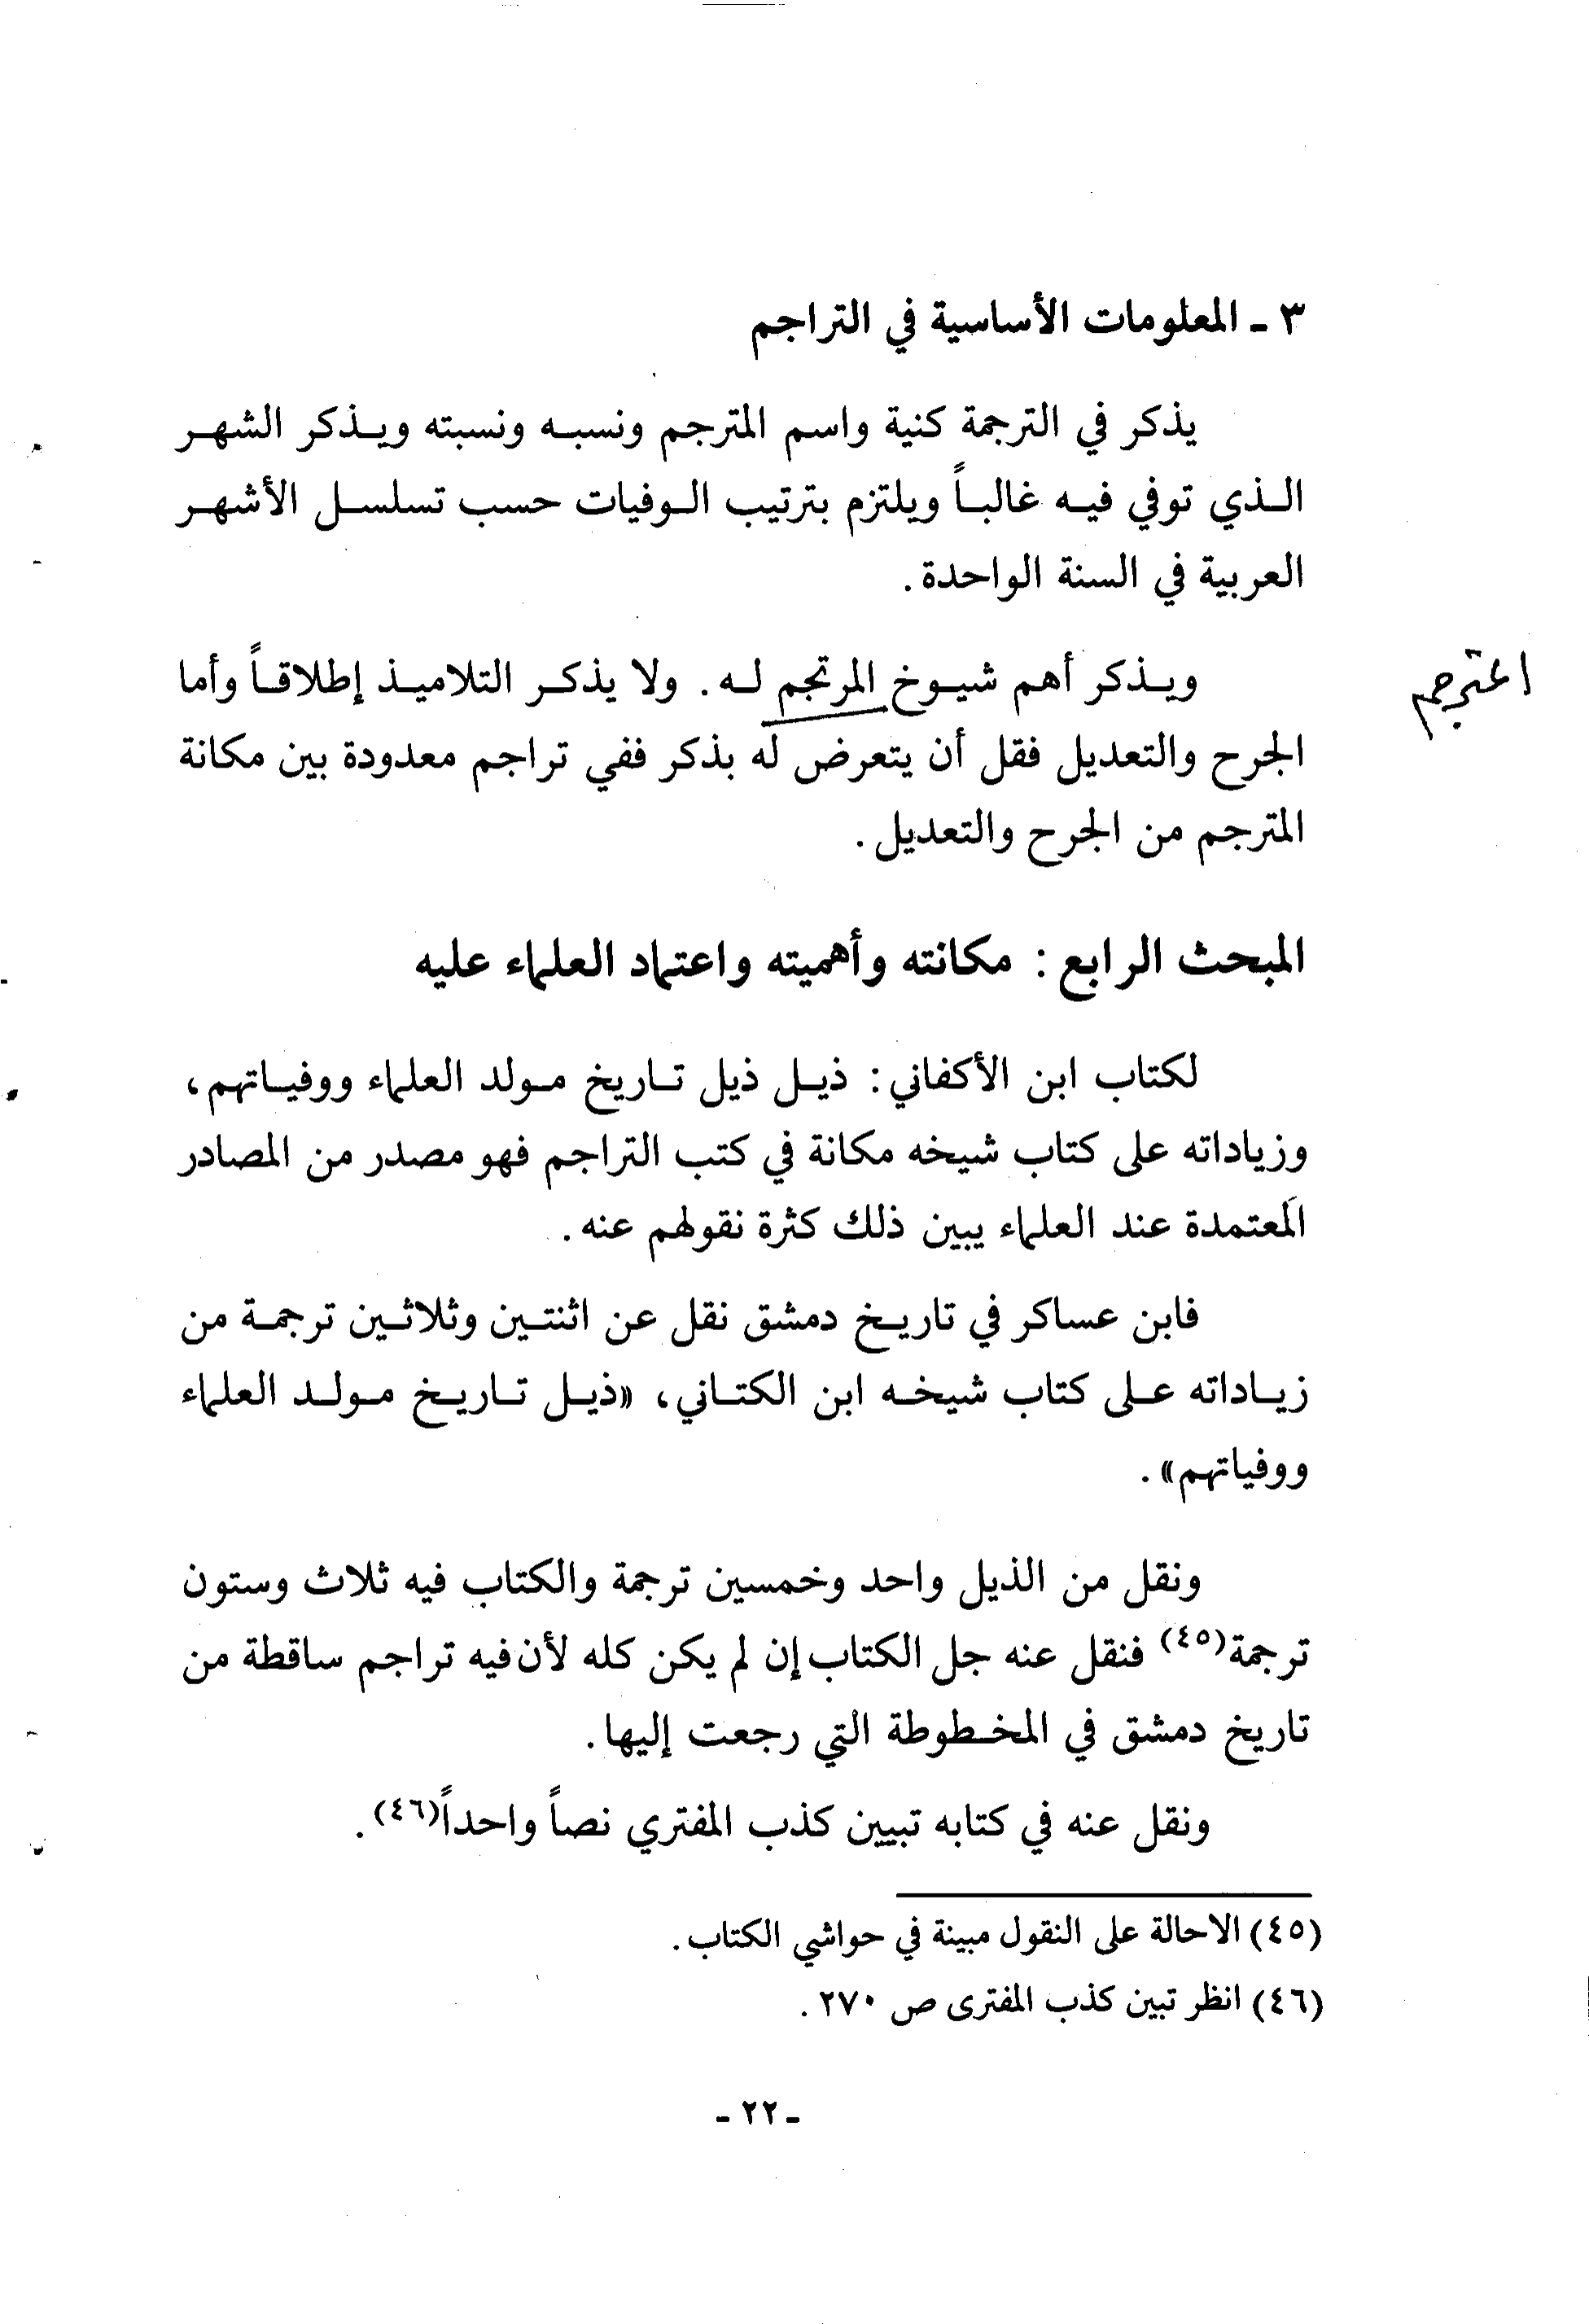 ٣ ـ المعلومات الأساسية في التراجم
يذكر في الترجمة كنية واسم المترجم ونسبه ونسبته ويذكر الشهر
الذي توفي فيه غالباً ويلتزم بترتيب الوفيات حسب تسلسل الأشهر
العربية في السنة الواحدة.
ويذكر أهم شيوخ المرتجم له. ولا يذكر التلاميذ إطلاقاً وأما
المترجم
الجرح والتعديل فقل أن يتعرض له بذكر ففي تراجم معدودة بين مكانة
المترجم من الجرح والتعديل.
المبحث الرابع: مكانته وأهميته واعتماد العلماء عليه
لكتاب ابن الأكفاني: ذيل ذيل تاريخ مولد العلماء ووفياتهم،
وزياداته على كتاب شيخه مكانة في كتب التراجم فهو مصدر من المصادر
المعتمدة عند العلماء يبين ذلك كثرة نقولهم عنه.
فابن عساكر في تاريخ دمشق نقل عن اثنتين وثلاثين ترجمة من
زياداته على كتاب شيخه ابن الكتاني، «ذيل تاريخ مولد العلماء
ووفياتهم».
ونقل من الذيل واحد وخمسين ترجمة والكتاب فيه ثلاث وستون
ترجمة(٤٥) فنقل عنه جل الكتاب إن لم يكن كله لأن فيه تراجم ساقطة من
تاريخ دمشق في المخطوطة التي رجعت إليها.
ونقل عنه في كتابه تبيين كذب المفتري نصاً واحداً(٤٦).
(٤٥) الاحالة على النقول مبينة في حواشي الكتاب.
(٤٦) انظر تبين كذب المفترى ص ٢٧٠.
ـ ٢٢ ـ